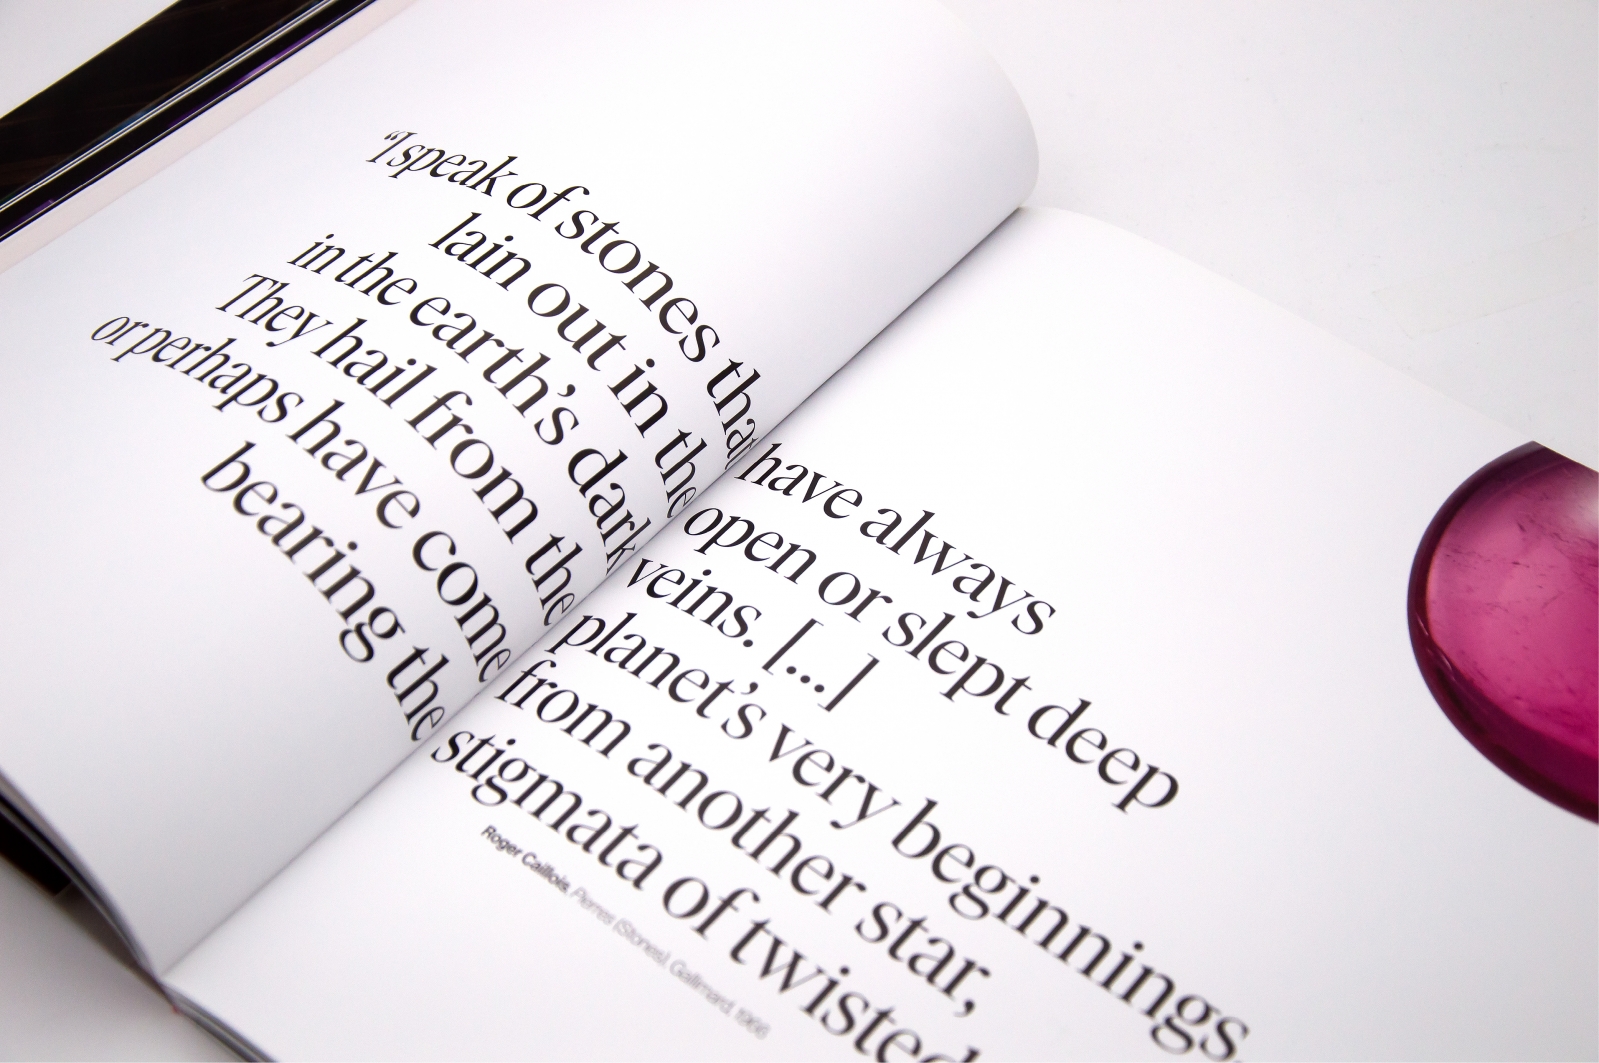 “I speak of stones that have always
lain out in the open or slept deep
in the earth’s dark veins. [...]
They hail from the planet’s very beginnings,
or perhaps have come from another star,
bearing the stigmata of twisted
Roger Caillois, Pierres (Stones), Gallimard, 1966